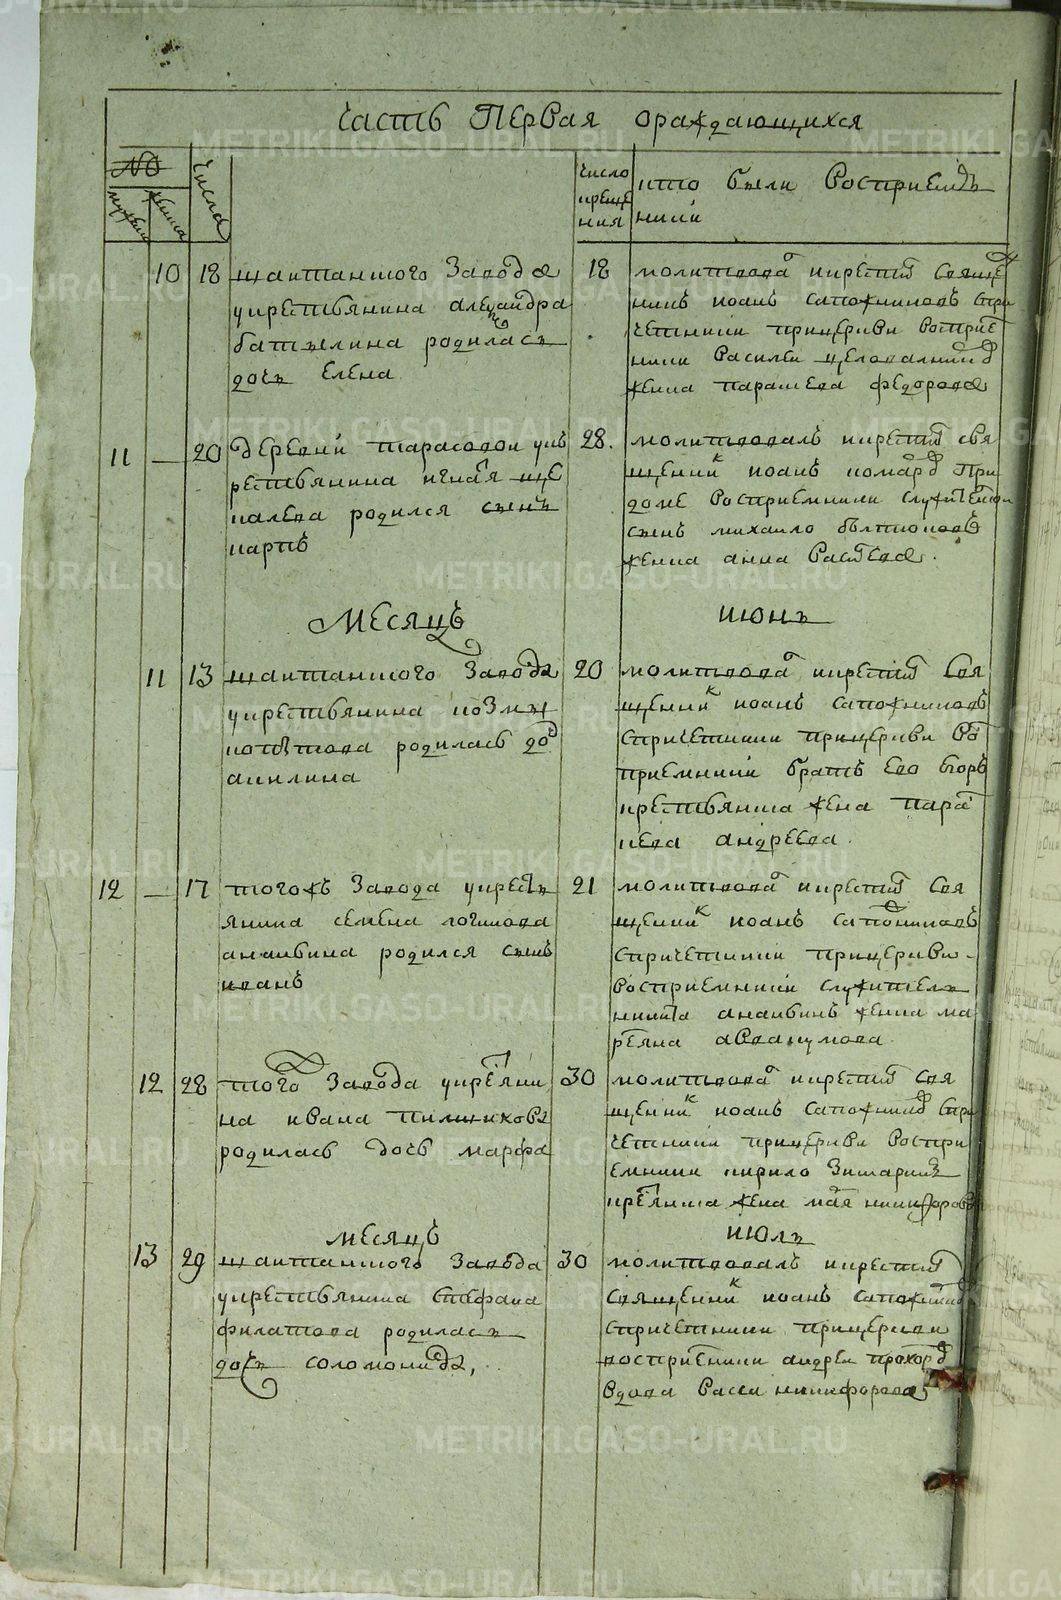 часть Первая ораждающихся
№
мужеска
женска
числа
число
креще
ния
кто были Восприемъ
ники
10 18 шаитанского Завода
укрестьянина александра
батылина родилась
дочь Елена
18 молитвова и крестил Свяще
никъ иоанъ сапожниковъ спри
четники прицеркви восприе
ники Василеи
женка парасковя федорова
11 — 20 деревни тарасовои укъ
рестьянина игнатя
калева родился сынъ
карпъ
28. молитвовалъ икрестил свя
щенник иоанъ комаров При
доме восприемники служителскои
сынъ михаило
женка анна Васлева.
Месяцъ
июнь
11 13 шаитанского Завода
укрестьянина козмы
копытова родилась до
акилина
20 молитвова икрестил Свя
щеник иоанъ сапожниковъ
спричетники прицеркви во
приемники братъ Его Егоръ
крестьянска жена пара
кева андреева.
12 — 17 тогожъ Завода укресть
янина семена логинова
ананьина родился сынъ
иванъ
21 молитвова икрестил Свя
щеник иоанъ сапожниковъ
спричетники прицеркви.
Восприемники служитель
никита ананьинъ женка ма
ремяна аввакумова
12 28 того Завода укрестяни
на ивана пилщикова
родилась дочь марфа
30 молитвова икрестил Свя
щенник иоанъ сапожников спри
четники прицеркви Воспри
емники кирило
крестянска жена маря никифорова
месяцъ
июль
13 29 шаитанского Завода
укрестьянина Стефана
филатова родилась
дочь соломонида,
30 молитвовалъ икрестил
Священник иоанъ сапожников
спричетники прицеркви
восприемники андреи прохоров
Вдова Васса никифорова
METRIKI.GASO-URAL.RU